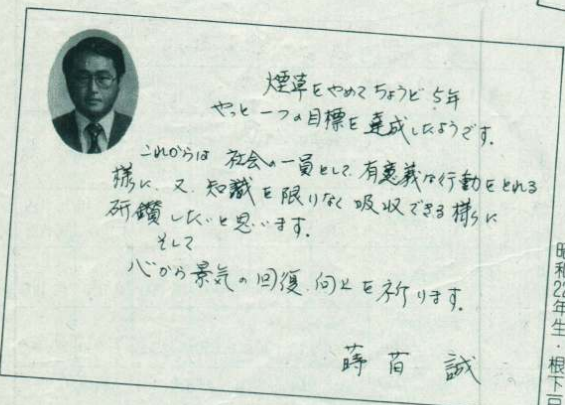 煙草をやめてちょうど5年
やっと一つの目標を達成したようです。
これからは 社会の一員として、有意義な行動をとれる
様に、又、知識を限りなく吸収できる様に
研鑽したいと思います。
そして
心から景気の回復、向上を祈ります。
蒔苗 誠
昭和22年生・根下戸